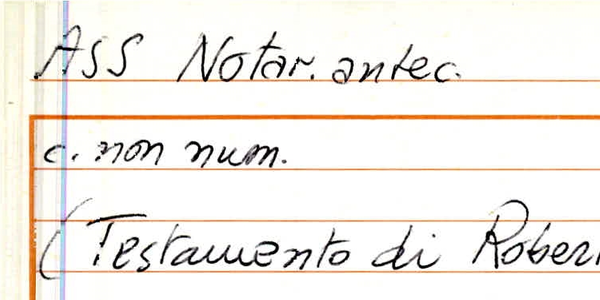 ASS Notar. antec.
c. non num.
(Testamento di Rober